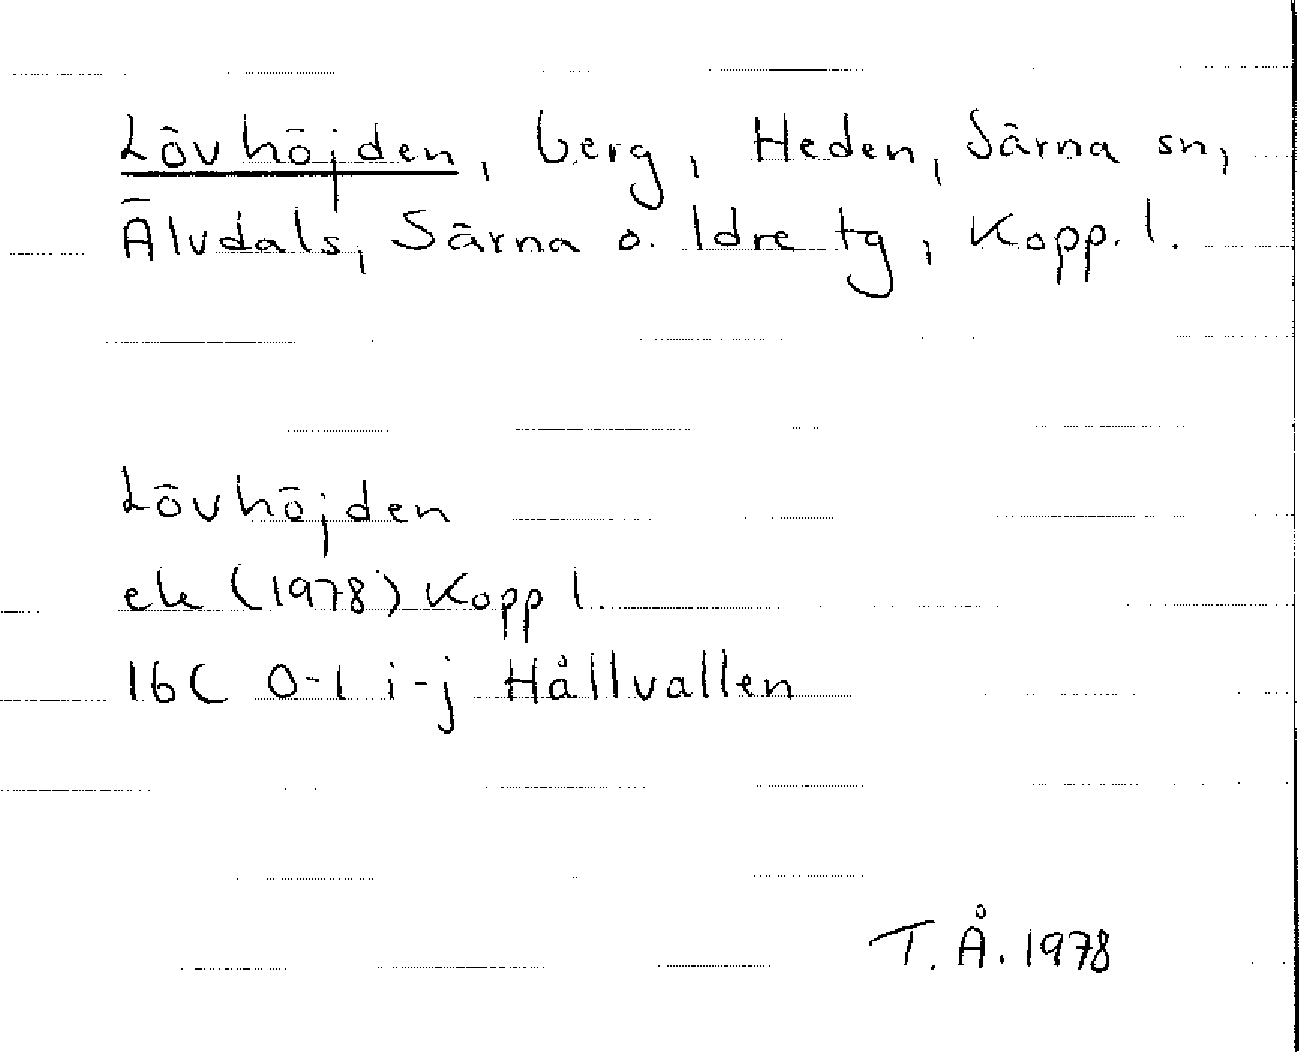 Lövhöjden, berg, Heden, Särna sn,
Älvdals, Särna o. Idre tg, Kopp. l.
Lövhöjden
ek (1978) Kopp l.
16C 0-1 i-j Hållvallen
T. Å. 1978